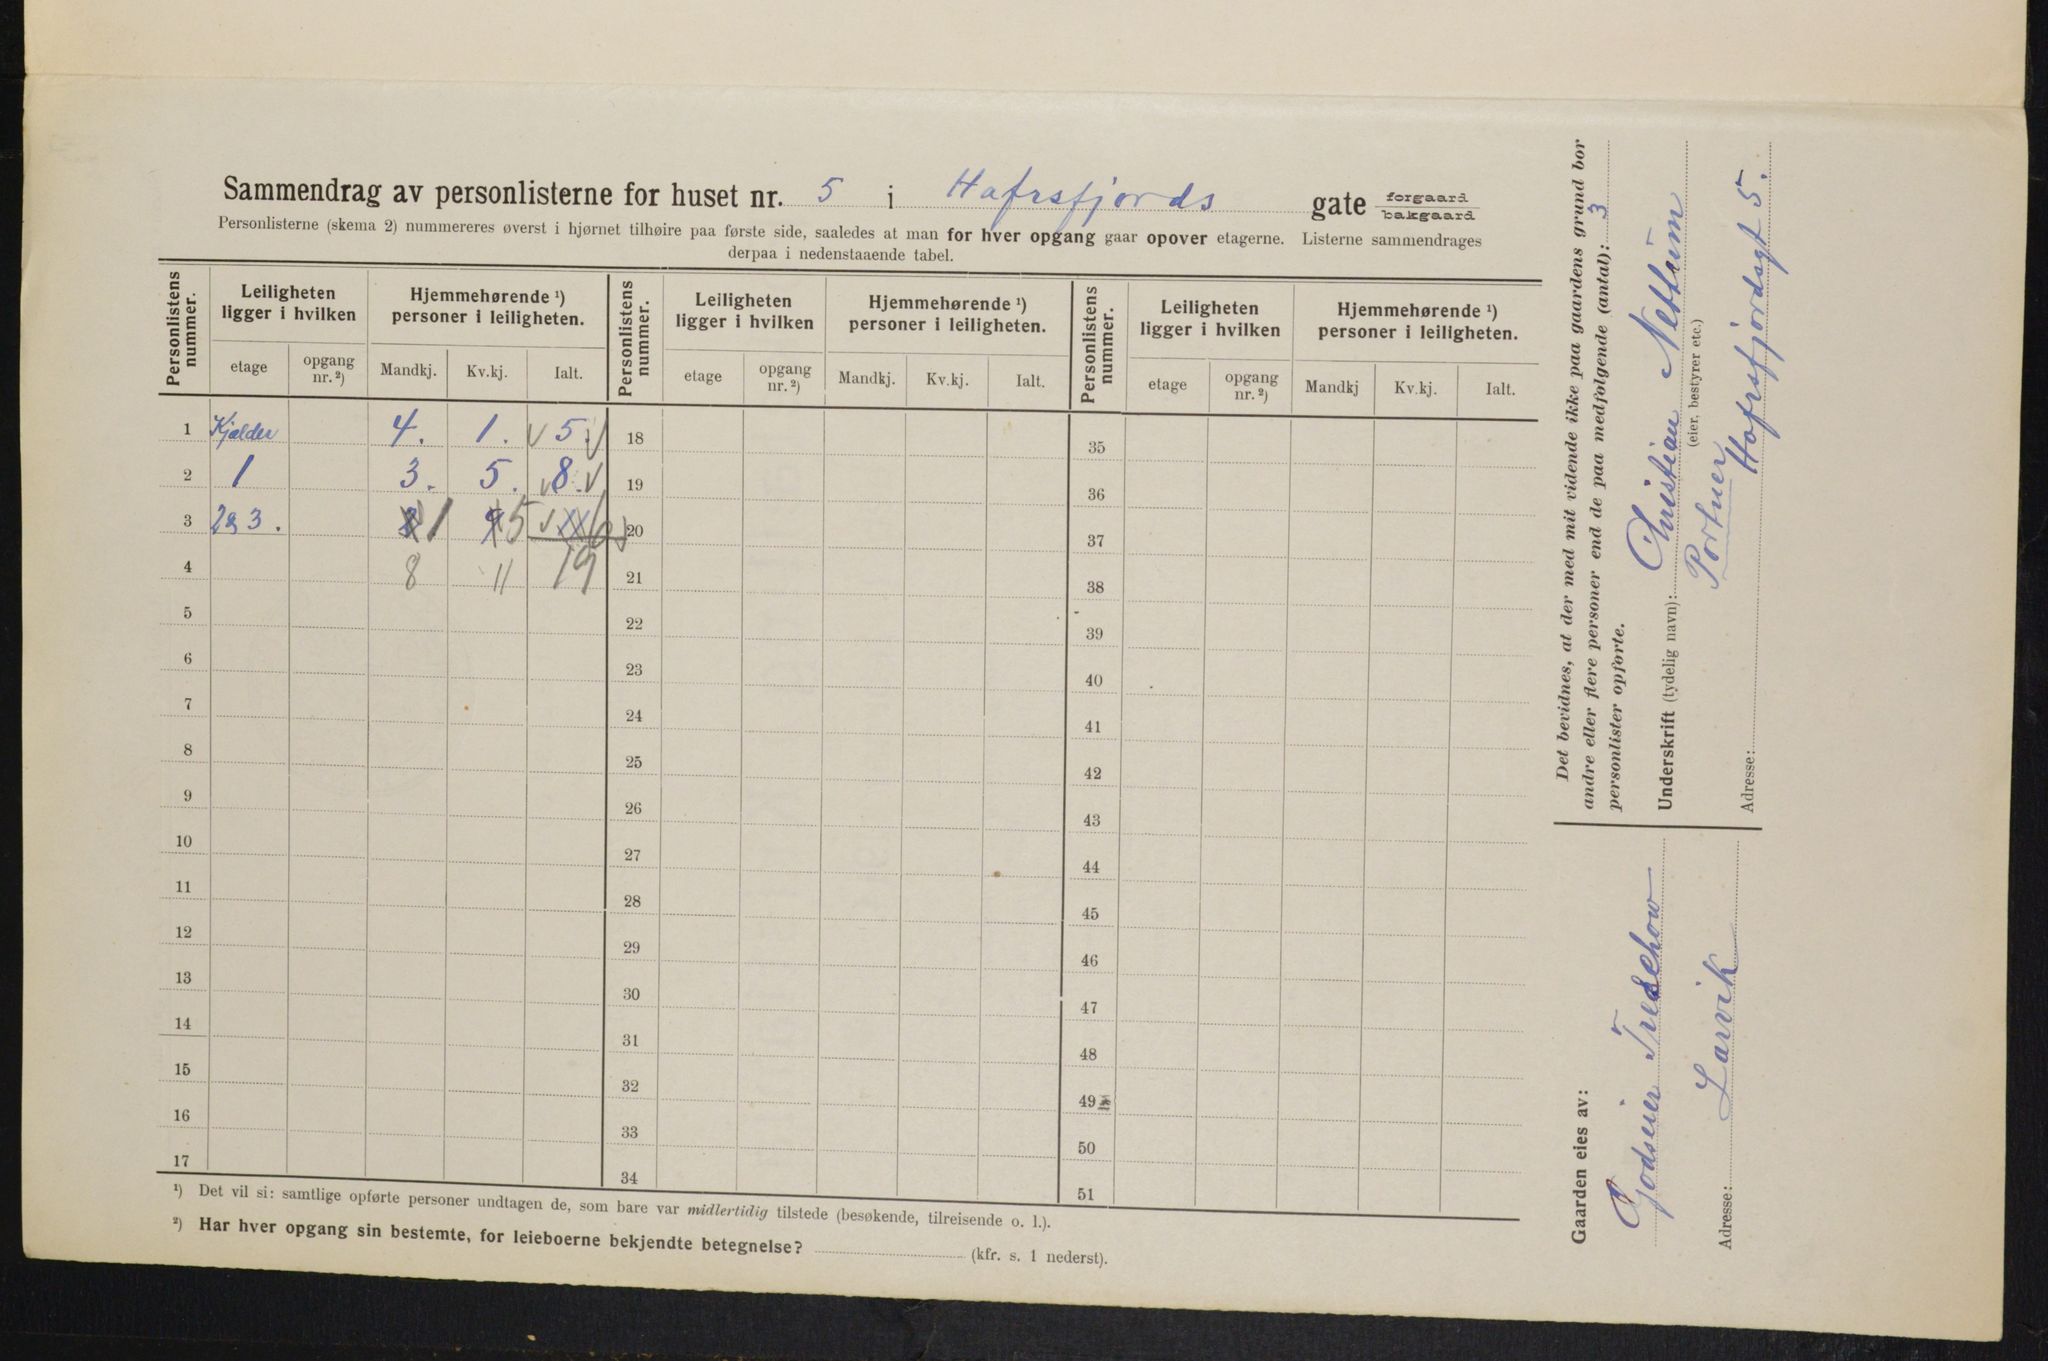 Sammendrag av personlisterne for huset nr. 5 i Hafrsfjords gate forgaard bakgaard
Personlisterne (skema 2) nummereres øverst i hjørnet tilhøire paa første side, saaledes at man for hver opgang gaar opover etagerne. Listerne sammendrages
derpaa i nedenstaaende tabel.
Personlistens nummer. Leiligheten ligger i hvilken Hjemmehørende ¹) personer i leiligheten. Personlistens nummer. Leiligheten ligger i hvilken Hjemmehørende ¹) personer i leiligheten. Personlistens nummer. Leiligheten ligger i hvilken Hjemmehørende ¹) personer i leiligheten.
etage opgang nr. ²) Mandkj. Kv.kj. Ialt. etage opgang nr. ²) Mandkj. Kv.kj. Ialt. etage opgang nr. ²) Mandkj Kv.kj. Ialt.
1 Kjælder 4. 1. 5. 18 35
2 1 3. 5. 8. 19 36
3 2 & 3. 1 5 6 20 37
4 8 11 19 21 38
5 22 39
6 23 40
7 24 41
8 25 42
9 26 43
10 27 44
11 28 45
12 29 46
13 30 47
14 31 48
15 32 49
16 33 50
17 34 51
¹) Det vil si: samtlige opførte personer undtagen de, som bare var midlertidig tilstede (besøkende, tilreisende o. l.).
²) Har hver opgang sin bestemte, for leieboerne bekjendte betegnelse? (kfr. s. 1 nederst).
Det bevidnes, at der med mit vidende ikke paa gaardens grund bor
andre eller flere personer end de paa medfølgende (antal): 3
personlister opførte.
Underskrift (tydelig navn): Christian Nettum
(eier, bestyrer etc.)
Portner
Adresse: Hafrsfjordsgt 5.
Gaarden eies av:
Godseier Treschow
Adresse: Larvik